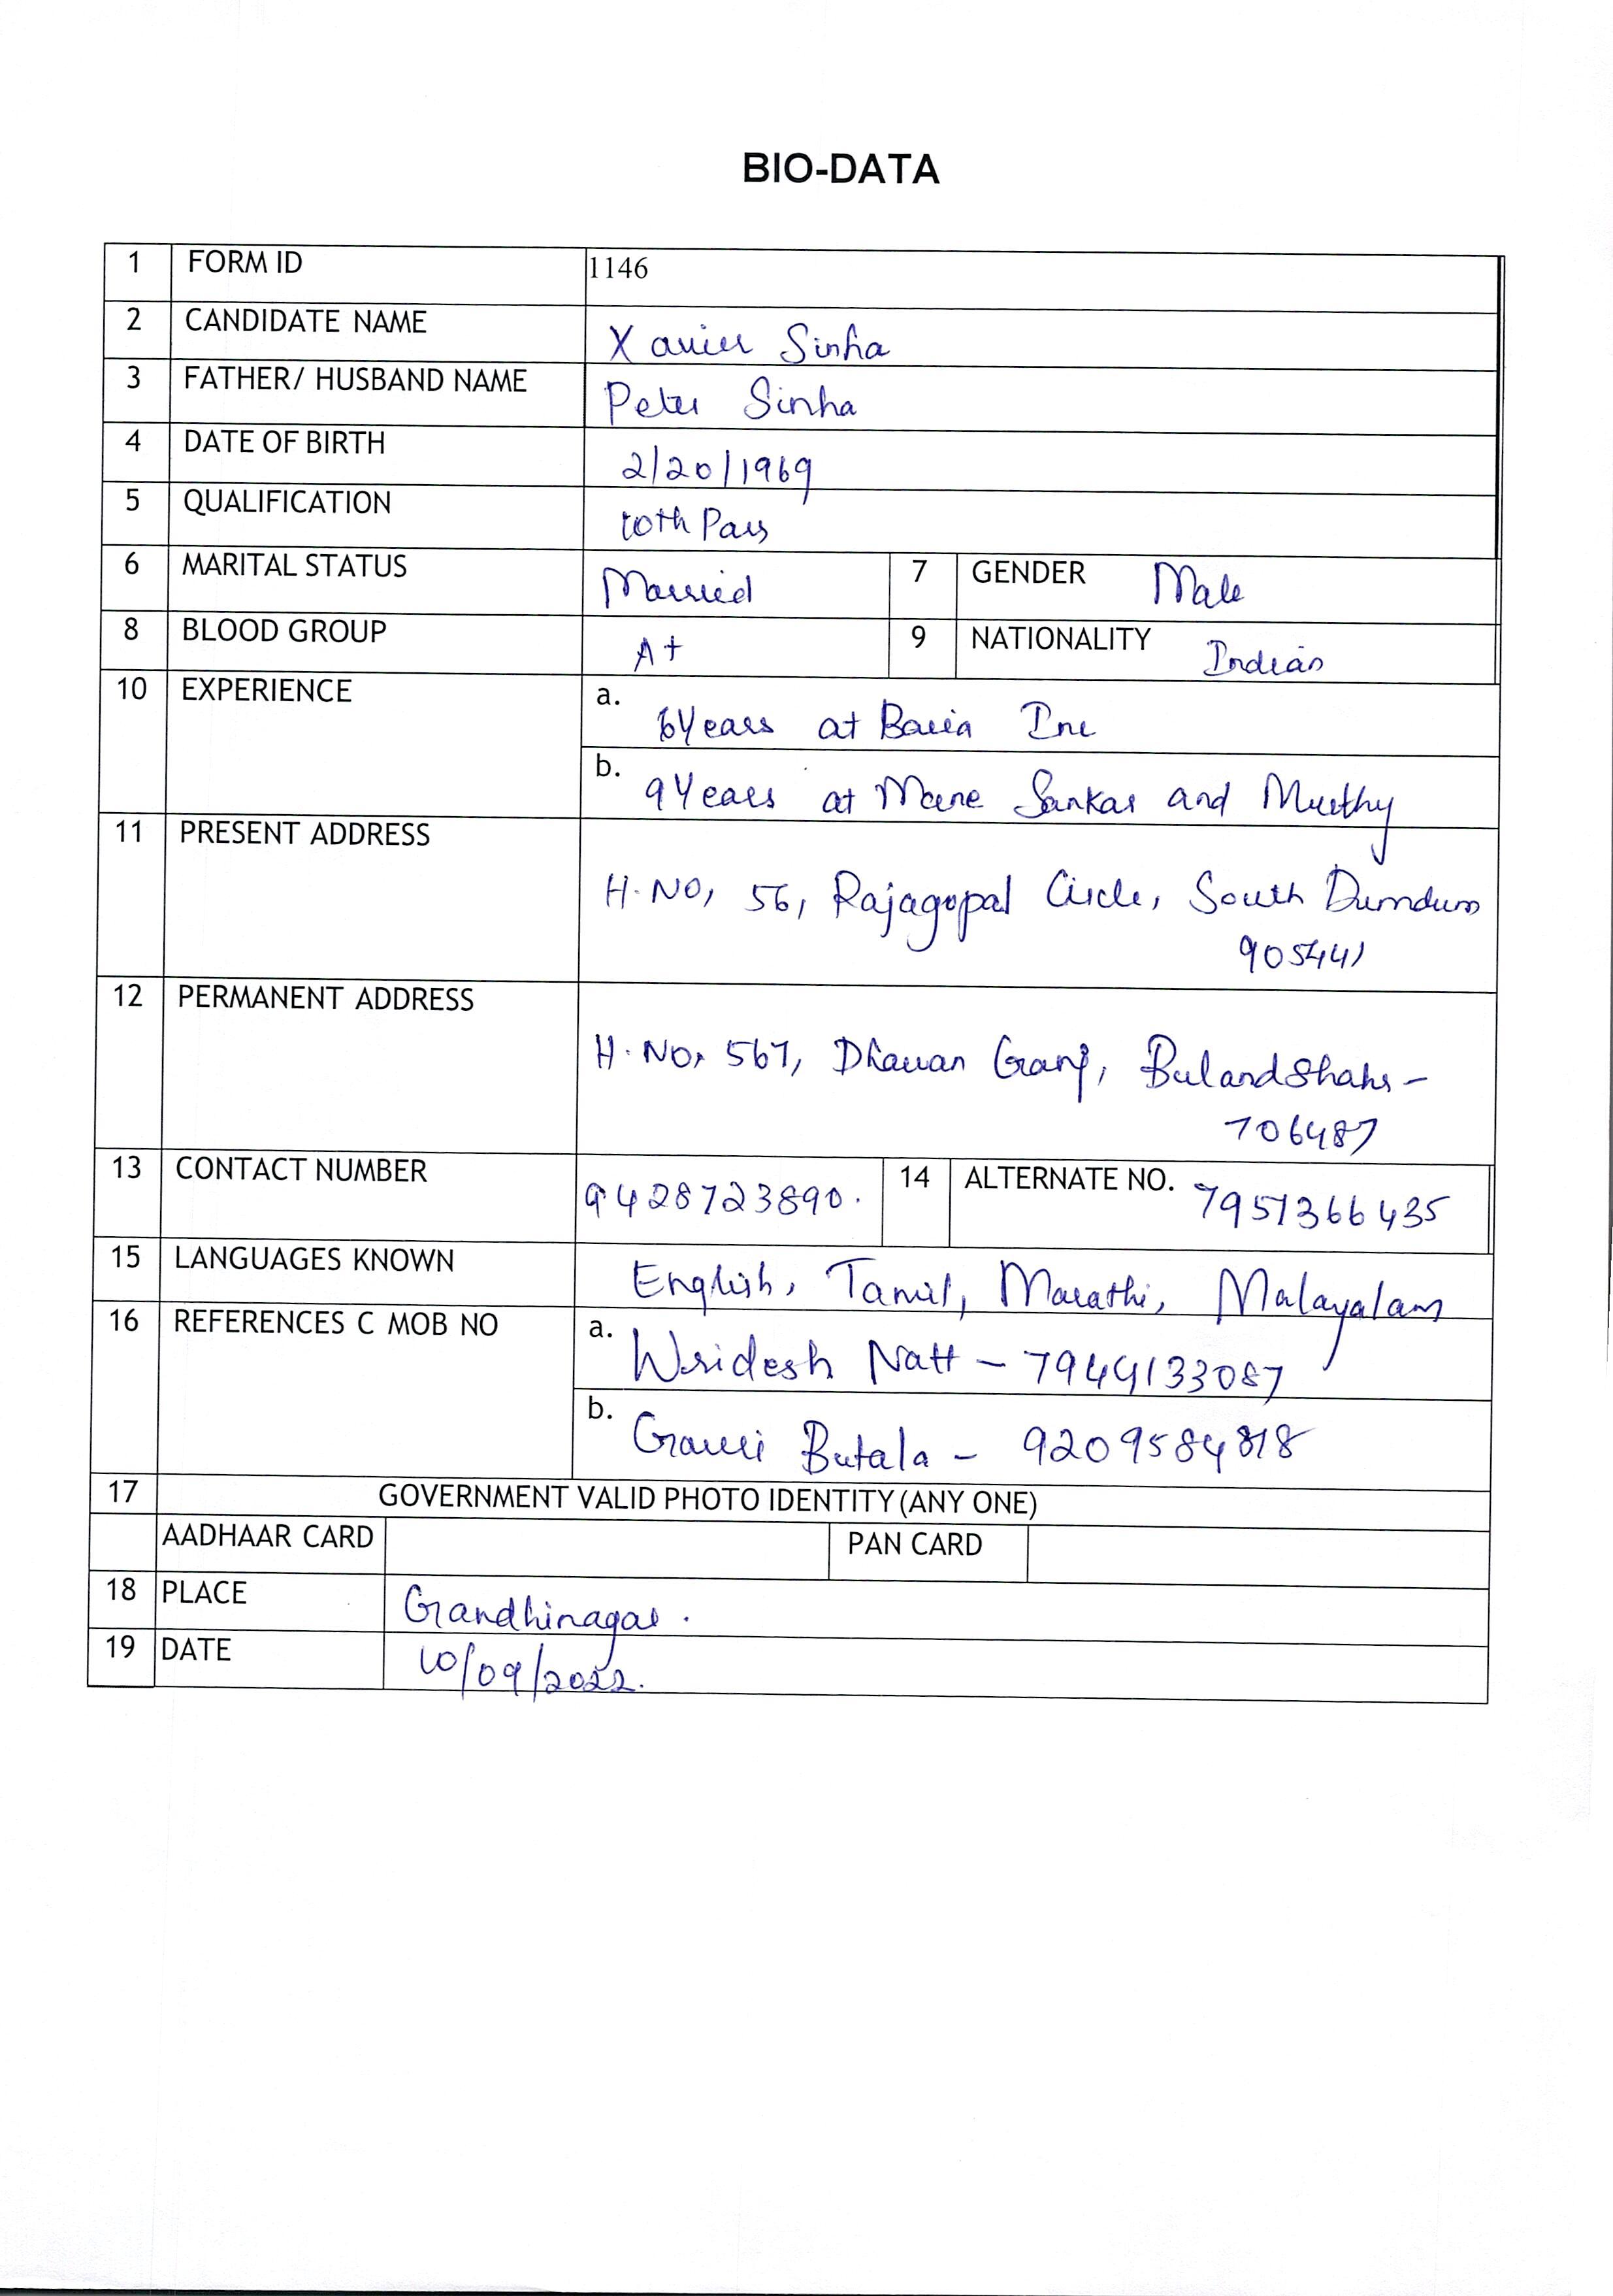 BIO-DATA
1 FORM ID 1146
2 CANDIDATE NAME Xavier Sinha
3 FATHER/ HUSBAND NAME Peter Sinha
4 DATE OF BIRTH 2/20/1969
5 QUALIFICATION 10th Pass
6 MARITAL STATUS Married 7 GENDER Male
8 BLOOD GROUP A+ 9 NATIONALITY Indian
10 EXPERIENCE a. 6 Years at Baria Inc
b. 9 Years at Mane Sankar and Murthy
11 PRESENT ADDRESS
H.NO, 56, Rajagopal Circle, South Dumdum
905441
12 PERMANENT ADDRESS
H.NO, 567, Dhawan Ganj, Bulandshahr -
706487
13 CONTACT NUMBER 9428723890. 14 ALTERNATE NO. 7951366435
15 LANGUAGES KNOWN English, Tamil, Marathi, Malayalam
16 REFERENCES C MOB NO a. Wridesh Natt - 7949133087
b. Gauri Butala - 9209584818
17 GOVERNMENT VALID PHOTO IDENTITY (ANY ONE)
AADHAAR CARD PAN CARD
18 PLACE Gandhinagar.
19 DATE 10/09/2022.